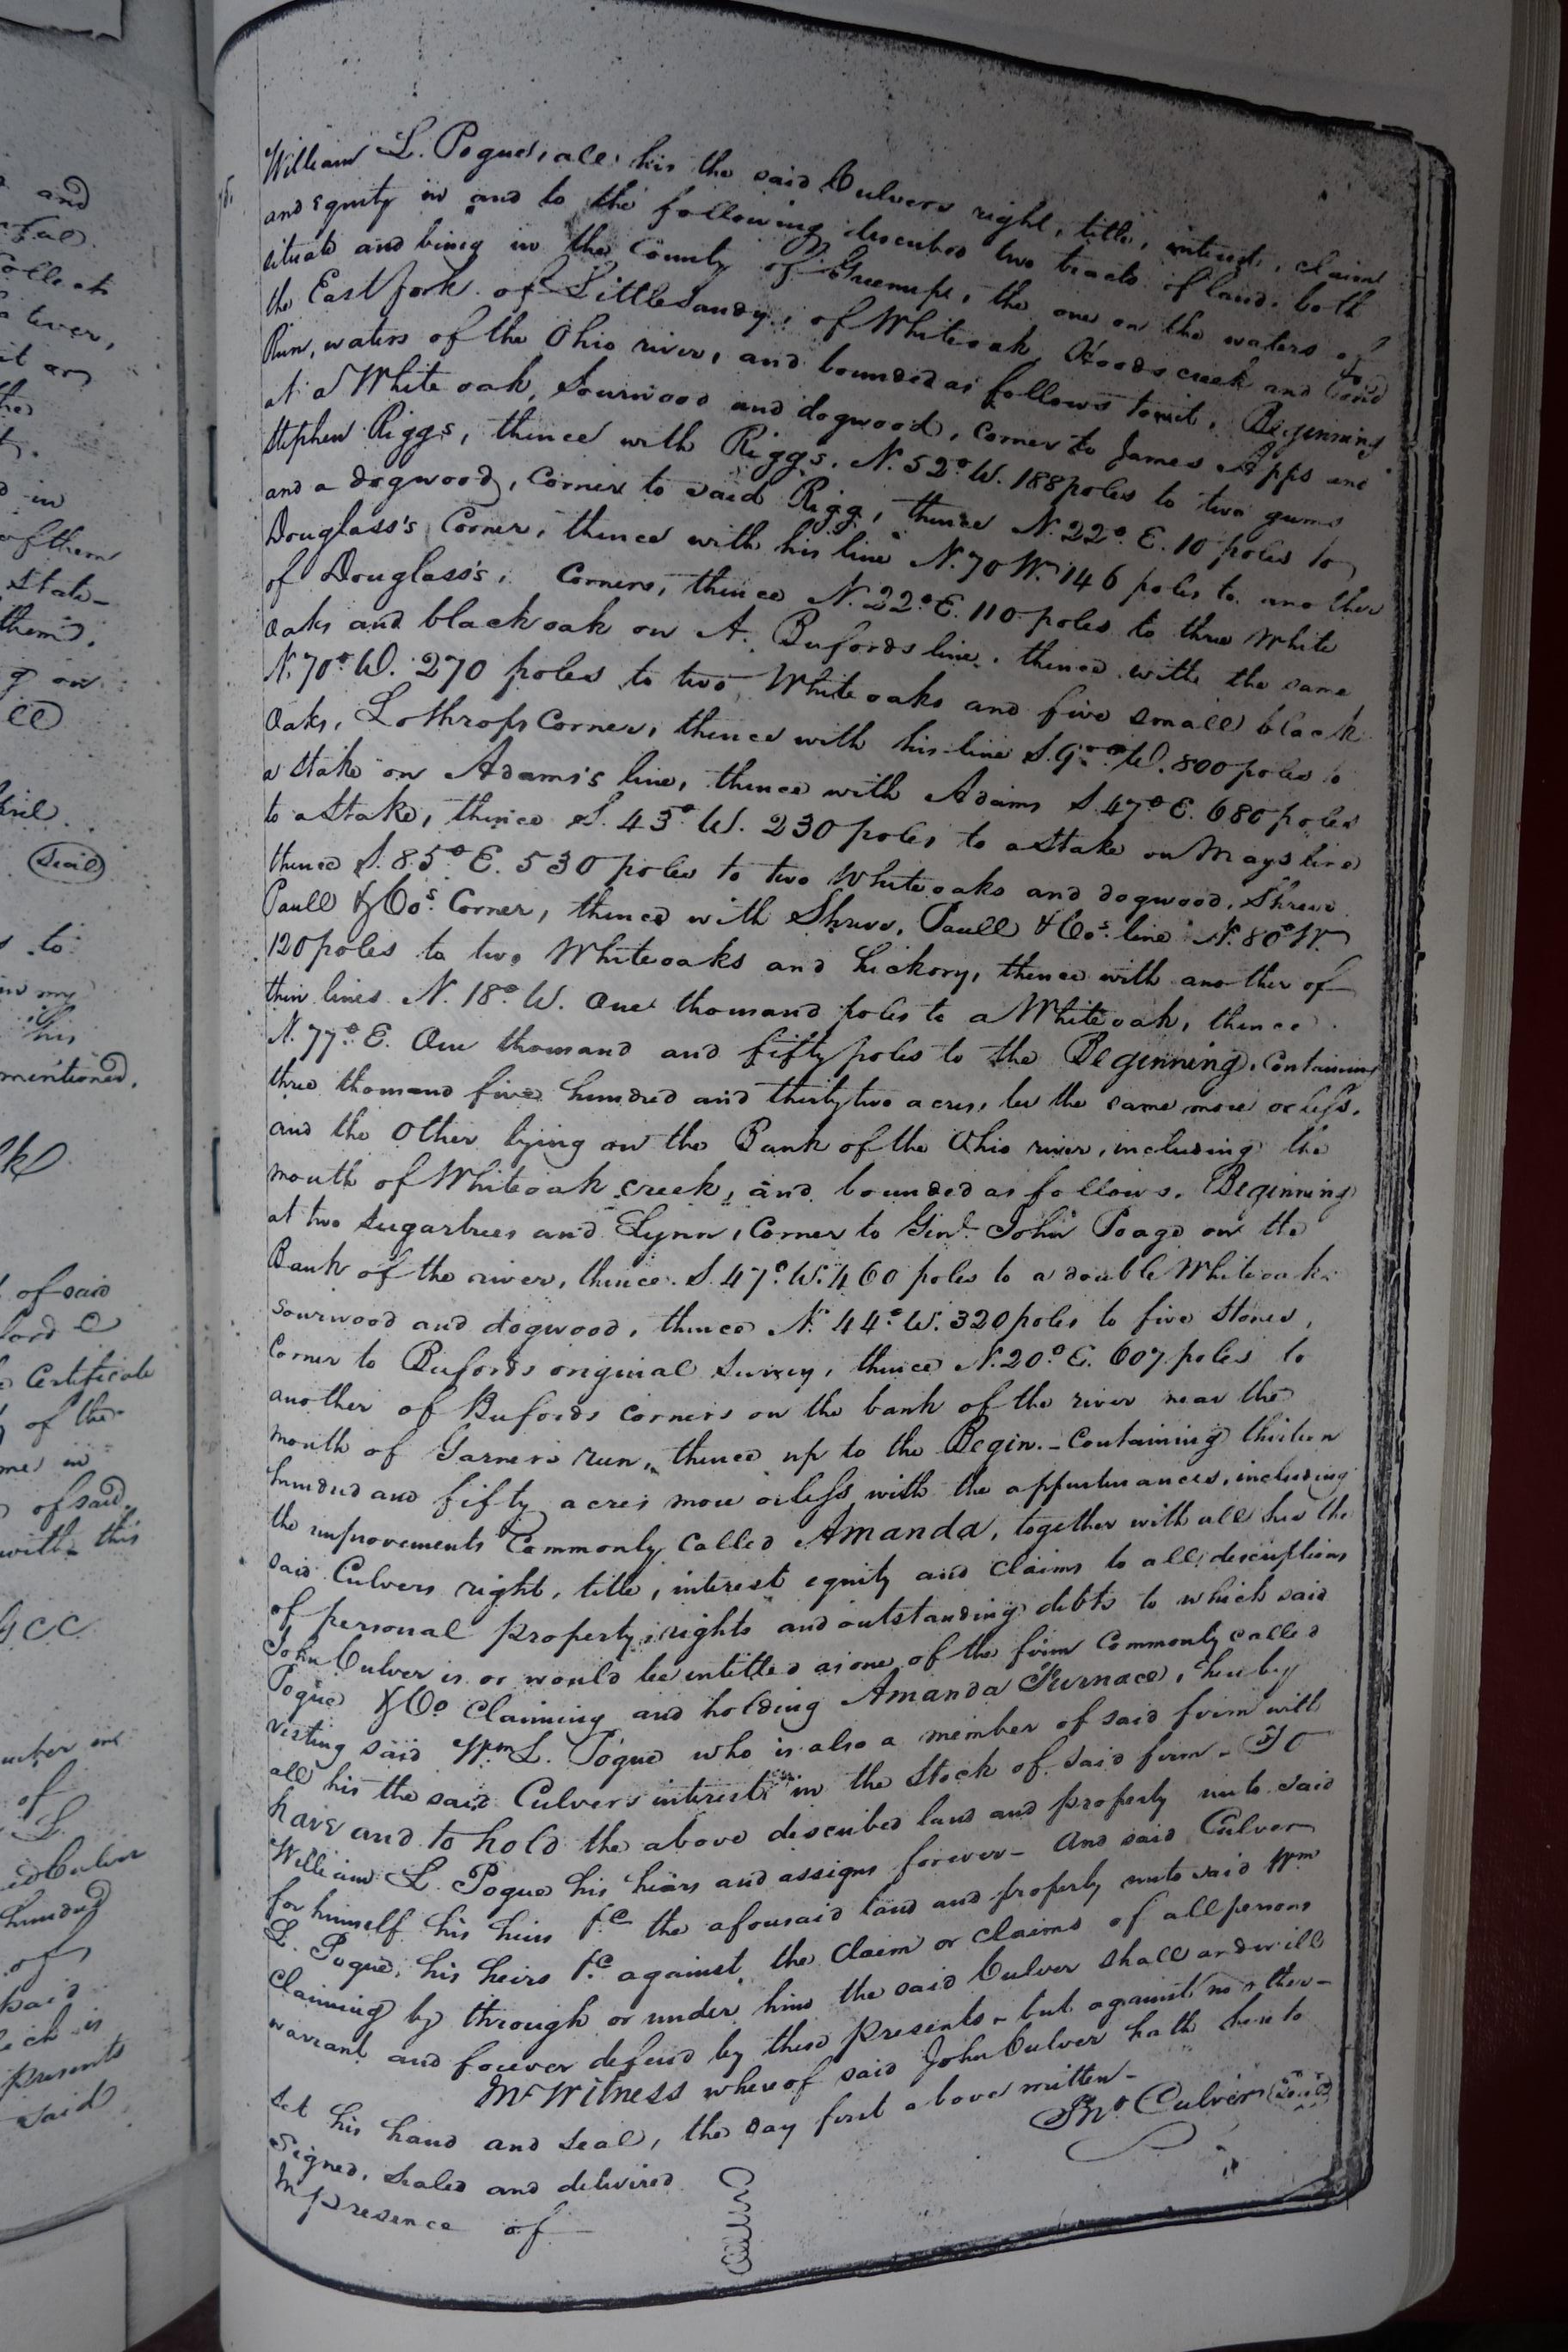 and
Collect
in
of them
State-
them,
(Seal)
to
in my
his
mentioned,
of said
Certificate
of the
of said
with this
of
L.
Culver
hundred
of
paid
is
presents
said
William L. Pogue, all his the said Culvers right, title, interest, claim
and equity in and to the following described two tracts of land. both
situate and being in the County of Greenup, the one on the waters of
the East fork of Little Sandy, of Whiteoak, Hoods creek and
Run, waters of the Ohio river, and bounded as follows towit, Beginning
at a White oak, Sourwood and dogwood, corner to James Apps and
Stephen Riggs, thence with Riggs. N. 52° W. 188 poles to two gums
and a dogwood, Corner to said Rigg, thence N. 22° E. 10 poles to
Douglass's Corner, thence with his line N. 70 W. 146 poles to another
of Douglass's, Corners, thence N. 22° E. 110 poles to three White
oaks and black oak on A. Bufords line, thence with the same
N. 70° W. 270 poles to two White oaks and five small black
Oaks, Lothrops Corner, thence with his line S. W. 800 poles to
a stake on Adams's line, thence with Adams S 47° E. 680 poles
to a Stake, thence S. 43° W. 230 poles to a Stake on Mays line
thence S. 85° E. 530 poles to two White oaks and dogwood, Shreve
Paull & Cos. Corner, thence with Shreve, Paull & Cos. line N. 80° W
120 poles to two Whiteoaks and hickory, thence with another of
thir lines N. 18° W. One thousand poles to a White oak, thence
N. 77° E. One thousand and fifty poles to the Beginning, Containing
three thousand five hundred and thirty two acres, be the same more or less,
and the Other lying on the Bank of the Ohio river, including the
mouth of Whiteoak creek, and bounded as follows. Beginning
at two Sugartrees and Lynn, Corner to Genl. John Poage on the
Bank of the river, thence S. 47° W. 460 poles to a double White oak
Sourwood and dogwood, thence N. 44° W. 320 poles to five Stones,
Corner to Bufords original Survey, thence N. 20° E. 607 poles to
another of Bufords corners on the bank of the river near the
mouth of Garners run, thence up to the Begin.- Containing thirteen
hundred and fifty acres more or less with the appurtenances, including
the improvements Commonly Called Amanda, together with all his the
said Culvers right, title, interest equity and claims to all descriptions
of personal property, rights and outstanding debts to which said
John Culver is or would be intitled as one of the firm Commonly called
Pogue & Co Claiming and holding Amanda Furnace, hereby
vesting said Wm L. Pogue who is also a member of said firm with
all his the said Culvers interest in the Stock of said firm - To
have and to hold the above described land and property unto said
William L. Pogue his heirs and assigns forever - And said Culver
for himself his heirs &c the aforesaid land and property unto said Wm
L. Pogue, his heirs &c against the Claim or claims of all persons
Claiming by through or under him the said Culver shall and will
warrant and forever defend by these presents - but against no other -
In Witness whereof said John Culver hath hereto
set his hand and seal, the day first above written -
Signed, Sealed and delivered Jno Culver (Seal)
In presence of